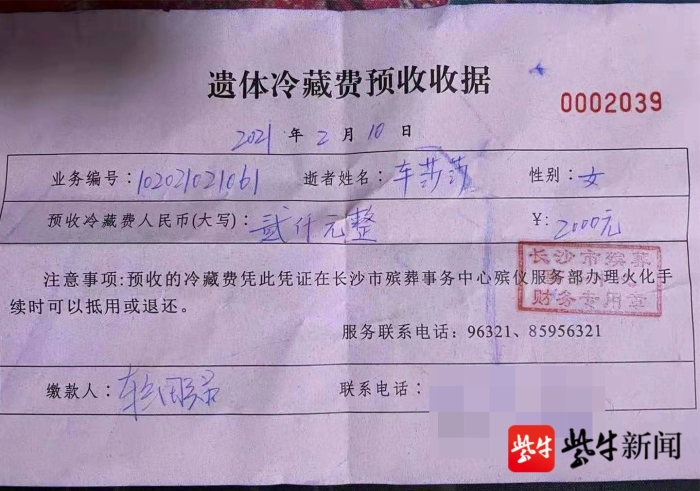 遗体冷藏费预收收据
0002039
2021 年 2 月 10 日
业务编号: 102021021061 逝者姓名: 车莎莎 性别: 女
预收冷藏费人民币(大写): 贰仟元整 ¥: 2000元
长沙市殡葬
财务专用章
注意事项:预收的冷藏费凭此凭证在长沙市殡葬事务中心殡仪服务部办理火化手
续时可以抵用或退还。
服务联系电话: 96321、85956321
缴款人: 联系电话:
紫牛 紫牛新闻